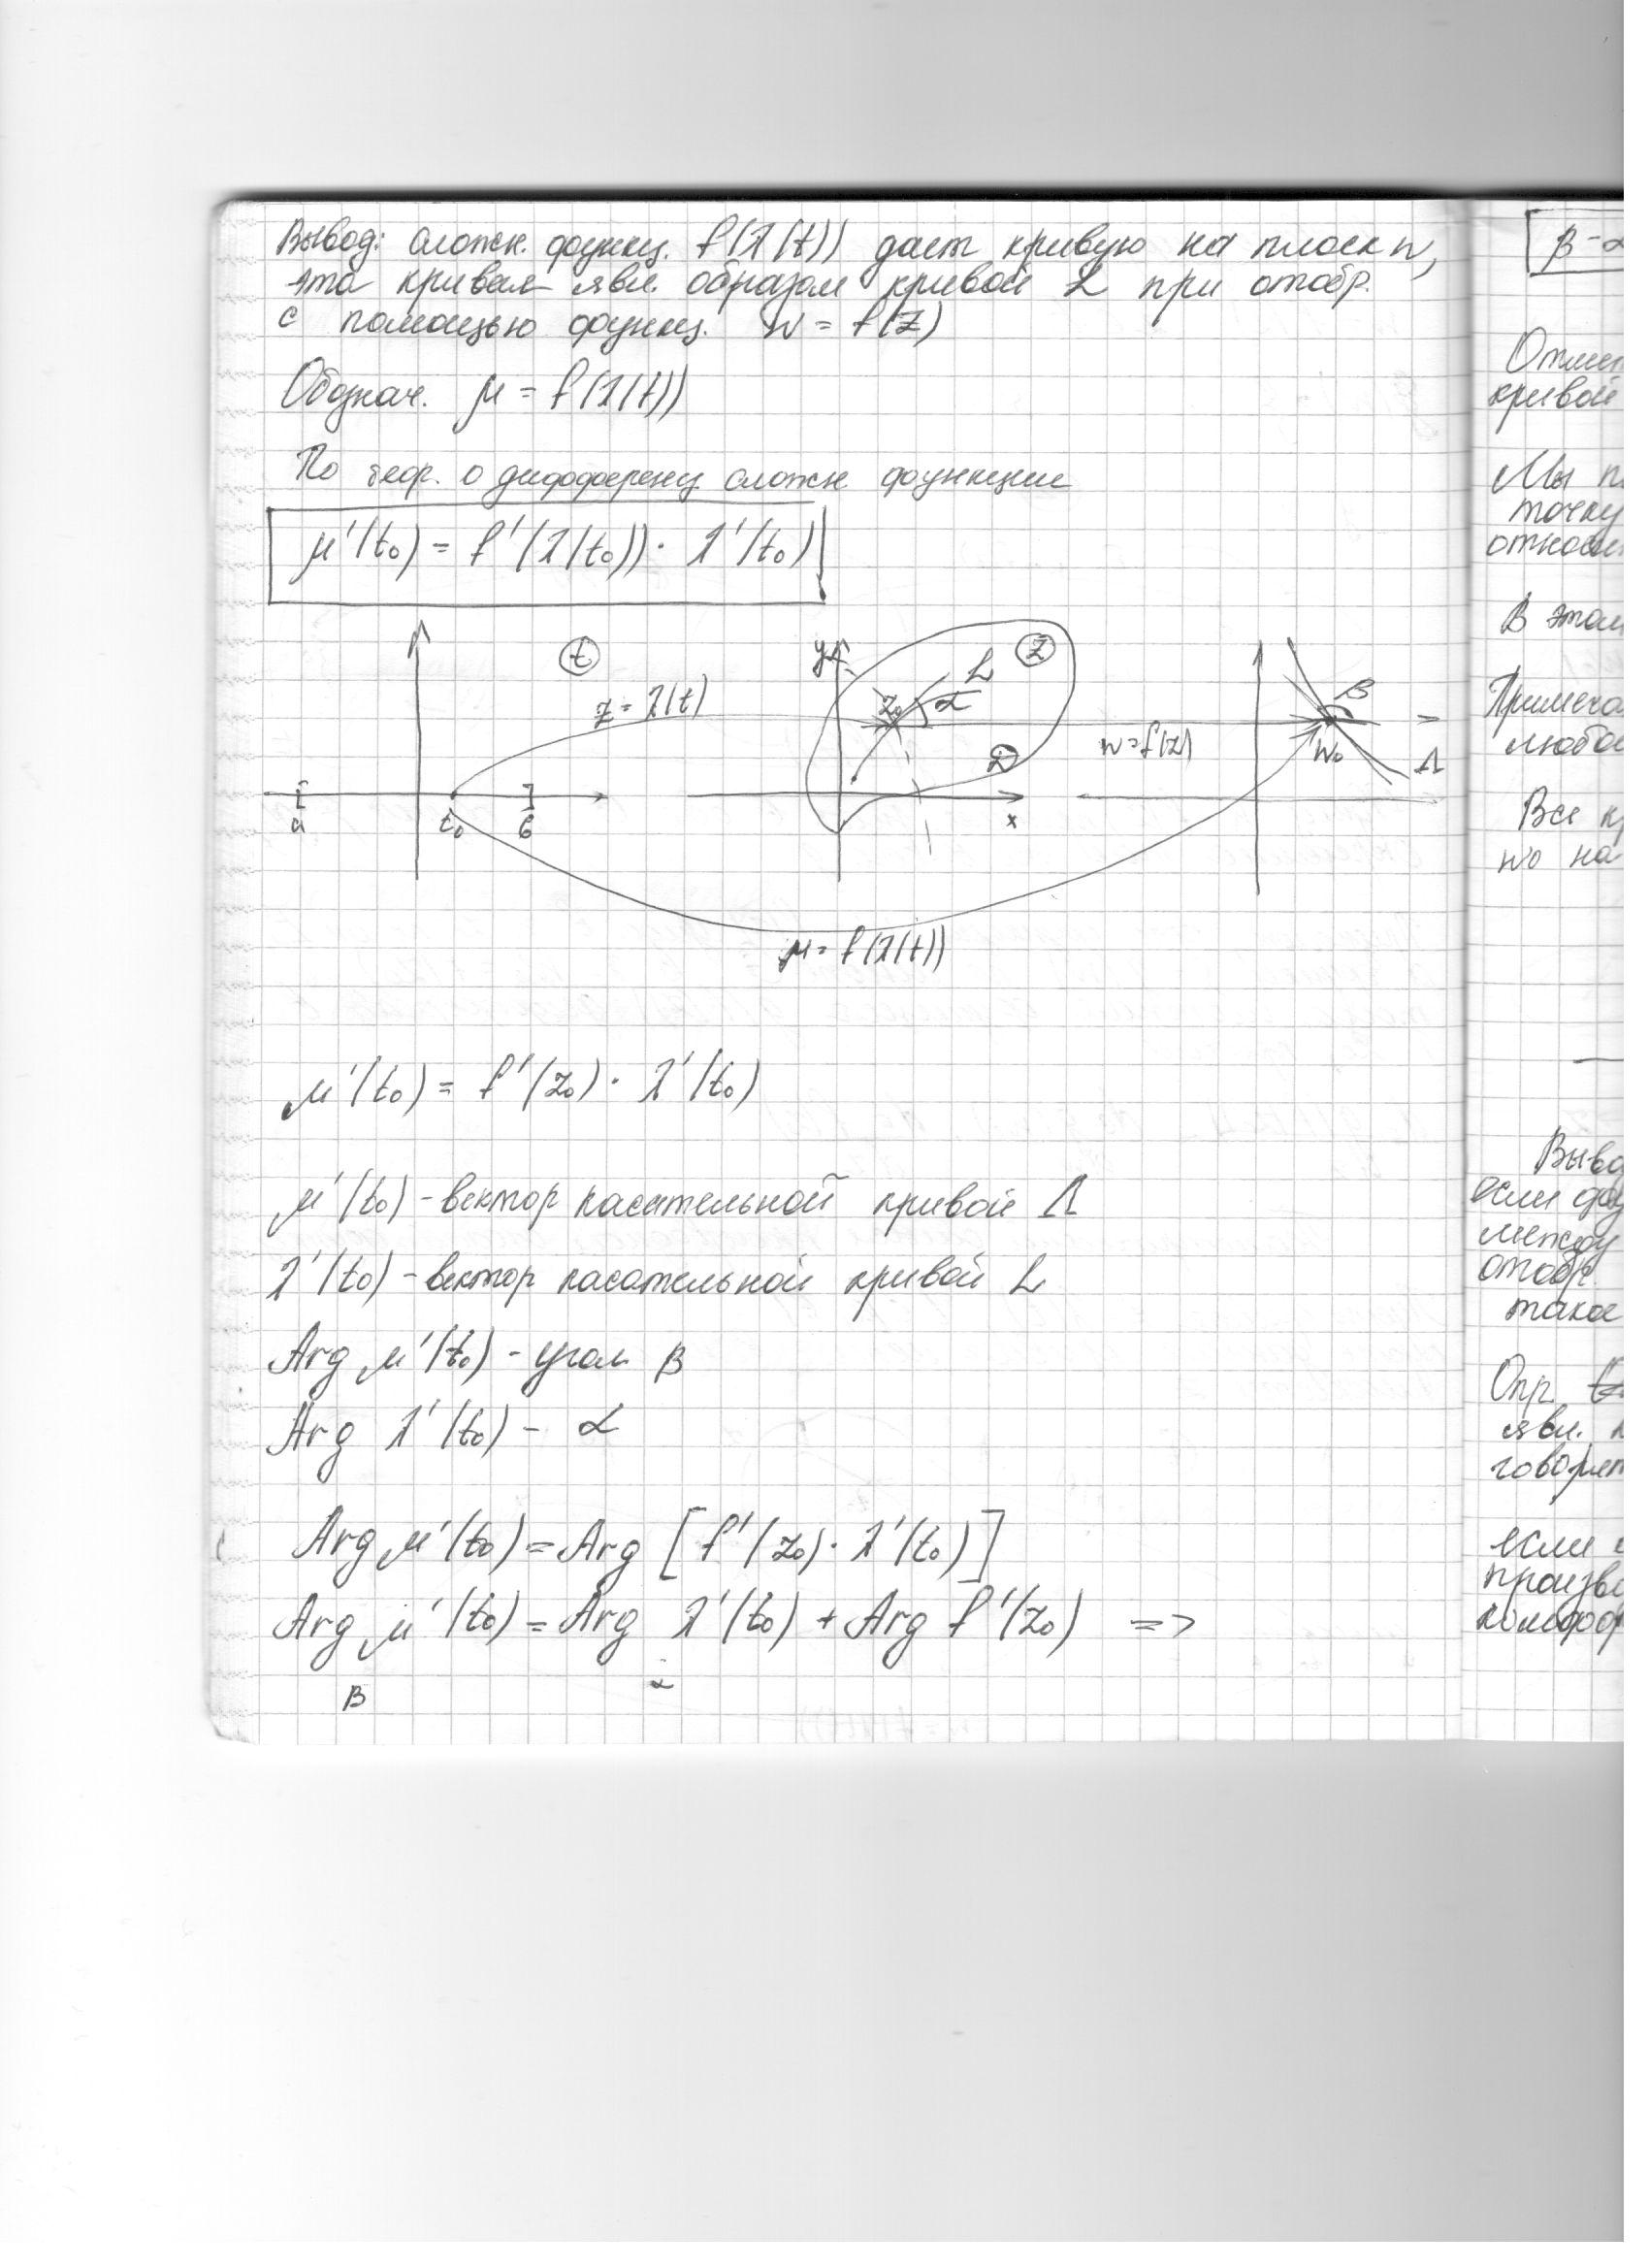 Вывод: сложн. функц. f(λ(t)) дает кривую на плоск w,
эта кривая явл. образом кривой L при отобр.
с помощью функц. w = f(z)
Обознач. μ = f(λ(t))
По теор. о дифференц сложн функции
μ'(t₀) = f'(λ(t₀)) · λ'(t₀)
t
z = λ(t)
a
t₀
b
y
z₀
L
α
z
D
x
w = f(z)
β
w₀
Λ
μ = f(λ(t))
μ'(t₀) = f'(z₀) · λ'(t₀)
μ'(t₀) - вектор касательной кривой Λ
λ'(t₀) - вектор касательной кривой L
Arg μ'(t₀) - угол β
Arg λ'(t₀) - α
Arg μ'(t₀) = Arg [f'(z₀) · λ'(t₀)]
Arg μ'(t₀) = Arg λ'(t₀) + Arg f'(z₀) =>
β
α
β - α
кривой
Мы
точку
В этом
Все
w₀ на
если
между
отобр.
такое
Опр.
явл.
если